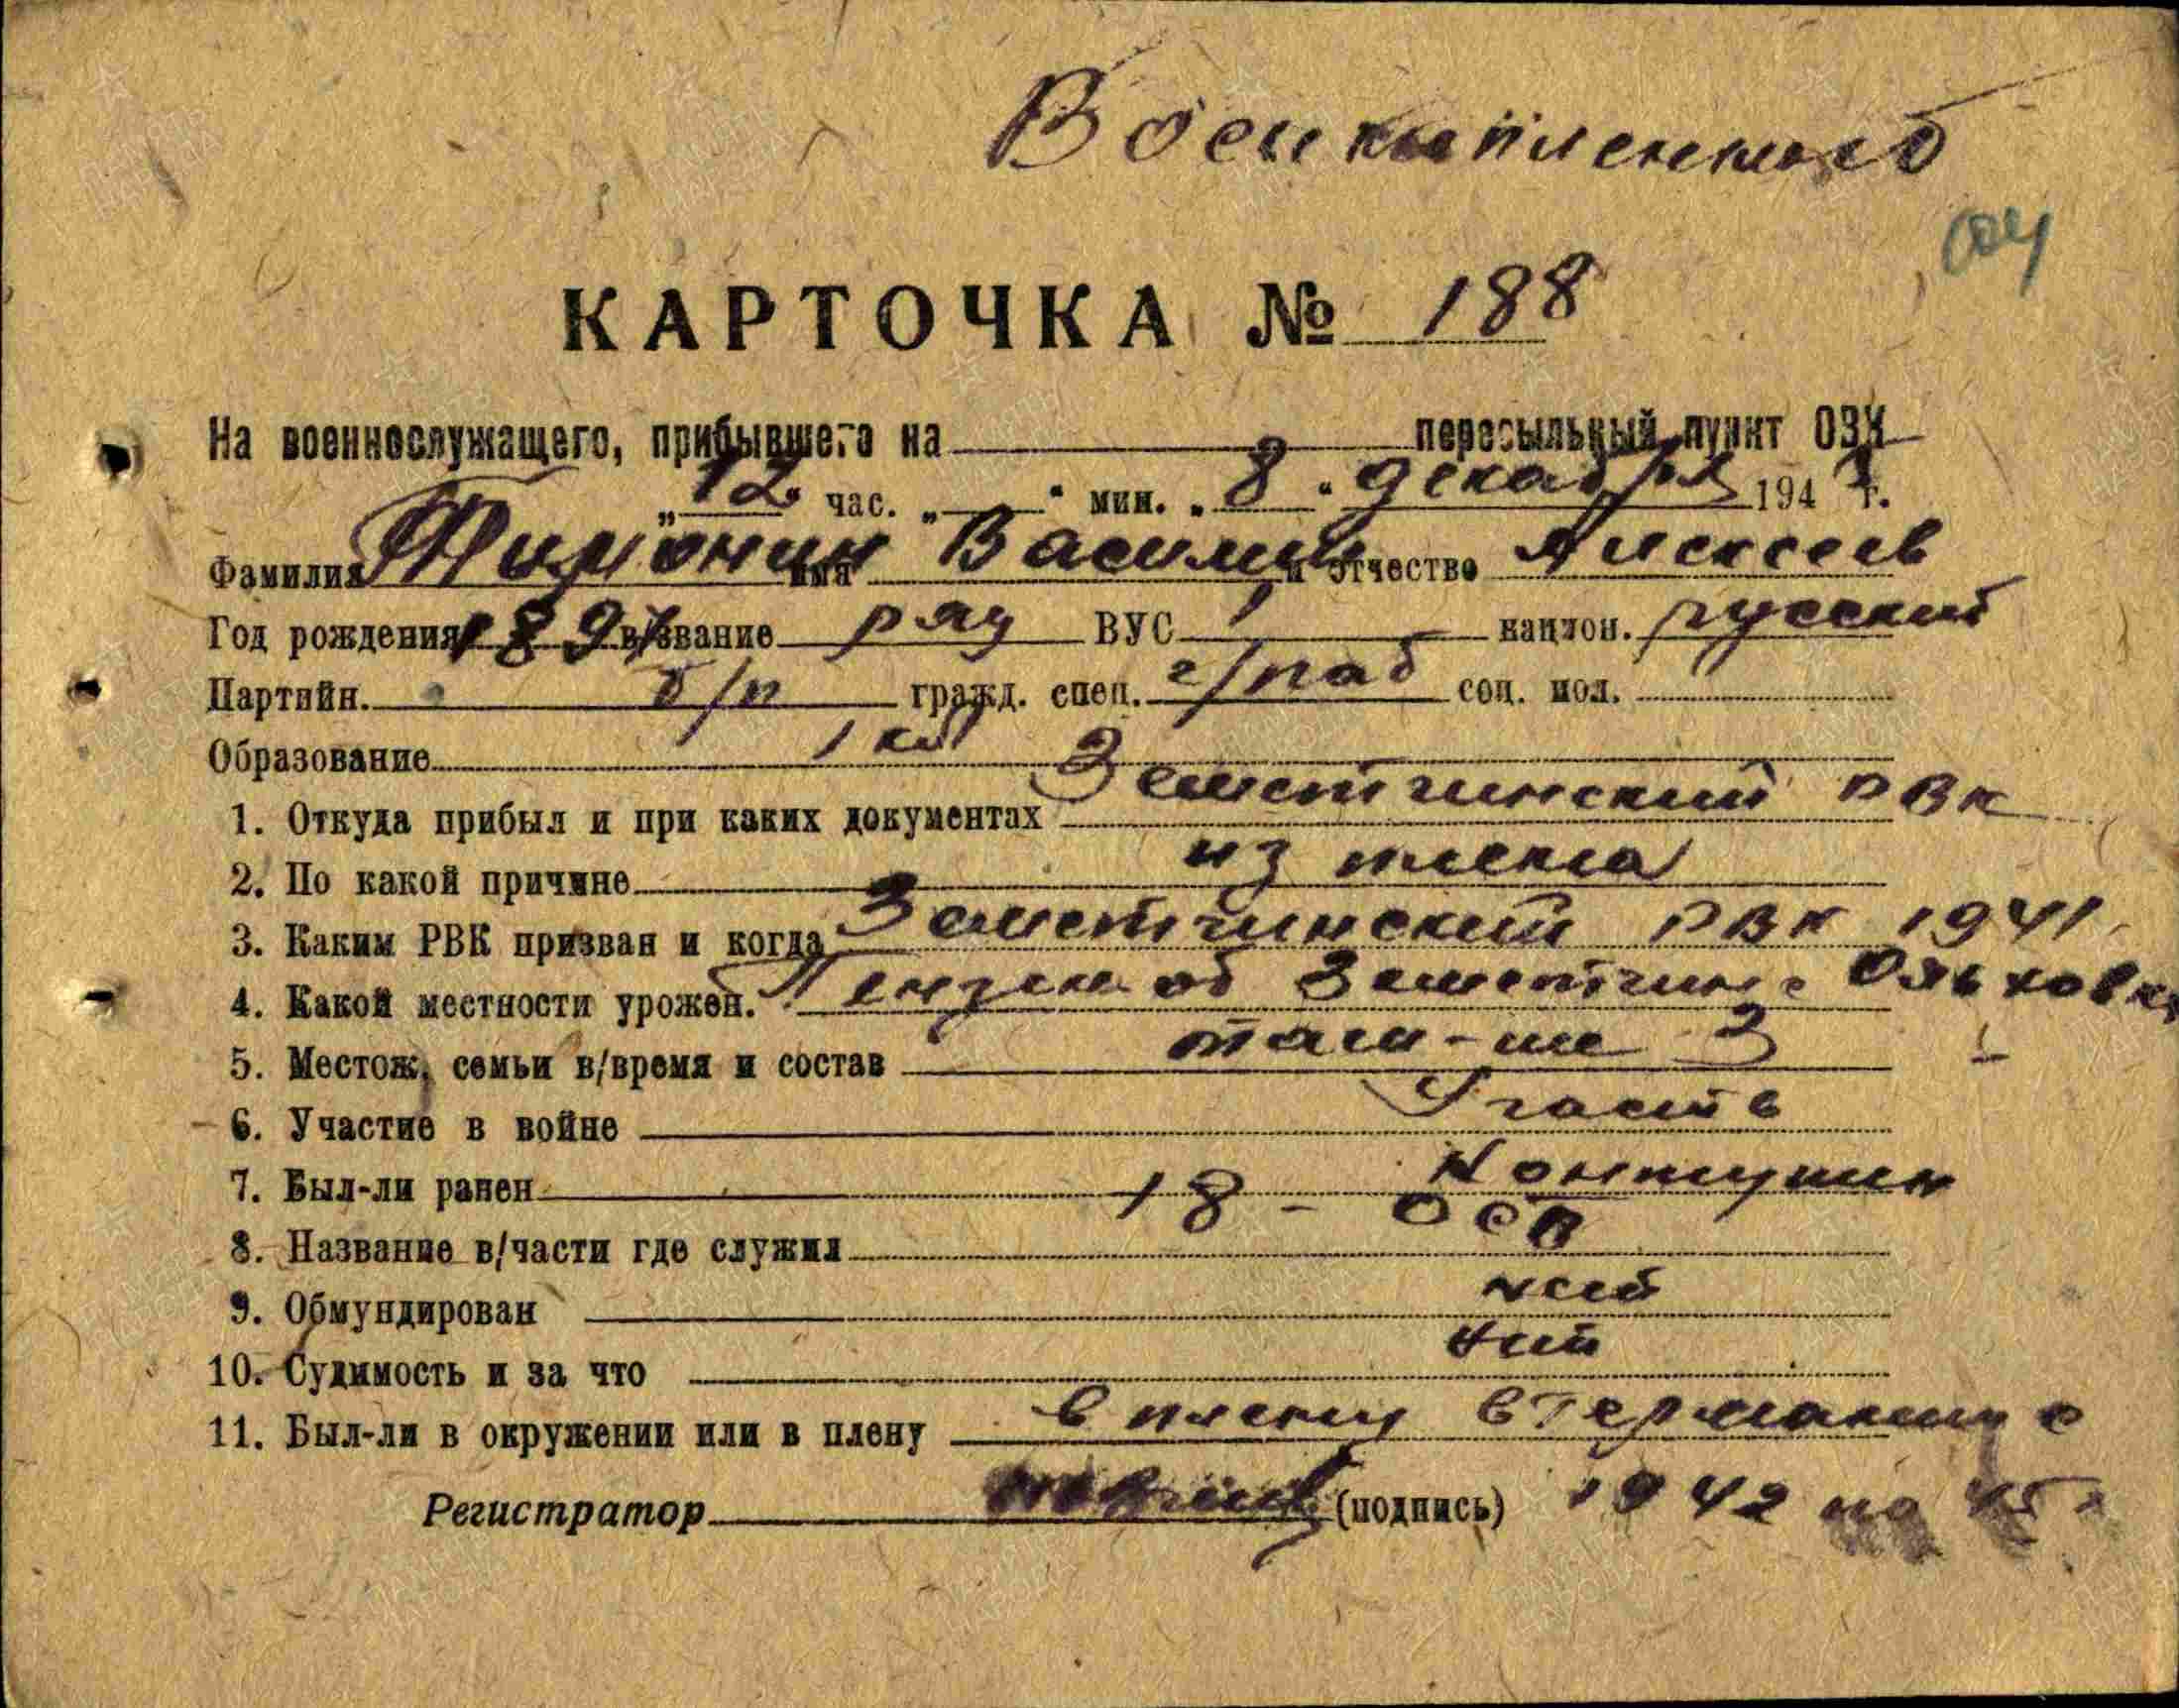 Военнопленного
КАРТОЧКА № 188
На военнослужащего, прибывшего на пересыльный пункт ОВК
„12“ час. „ “ мин. „8“ декабря 194 г.
Фамилия имя Василий и отчество Алексеев
Год рождения 1897 в/звание ряд ВУС 1 национ. русский
Партийн. б/п гражд. спец. ч/раб соц. пол.
Образование 1 кл
1. Откуда прибыл и при каких документах Земетчинский РВК
2. По какой причине из плена
3. Каким РВК призван и когда Земетчинский РВК 1941
4. Какой местности урожен. Пензен об Земетчин
5. Местож. семьи в/время и состав там-же 3
6. Участие в войне Участв
7. Был-ли ранен Контужин
8. Название в/части где служил 18 -
9. Обмундирован
10. Судимость и за что
11. Был-ли в окружении или в плену в плену в Германии с
Регистратор (подпись) 1942 по 45